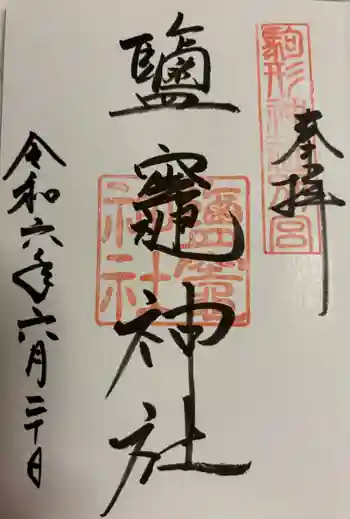 奉拝
駒形神社
鹽竈神社
鹽竈神社
令和六年六月二十日